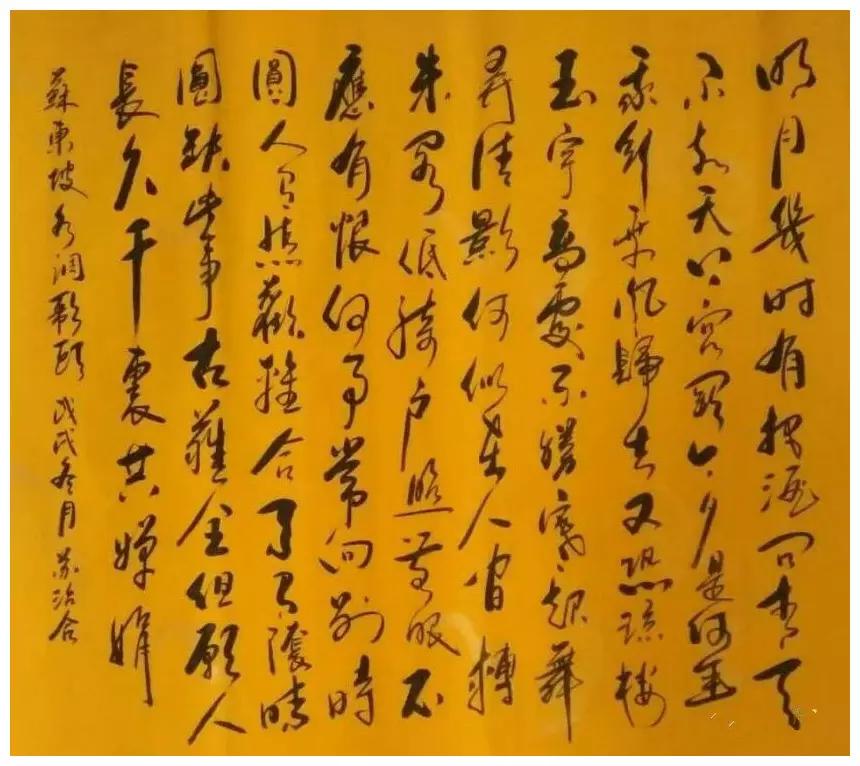 明月幾时有把酒问青天
不知天上宫阙今夕是何年
我欲乘风歸去又恐琼楼
玉宇高處不勝寒起舞
弄清影何似在人间轉
朱阁低绮户照無眠不
應有恨何事常向别時
圓人有悲歡離合月有陰晴
圓缺此事古難全但願人
長久千裏共嬋娟
蘇東坡水调歌頭 戊戌冬月 苏治合